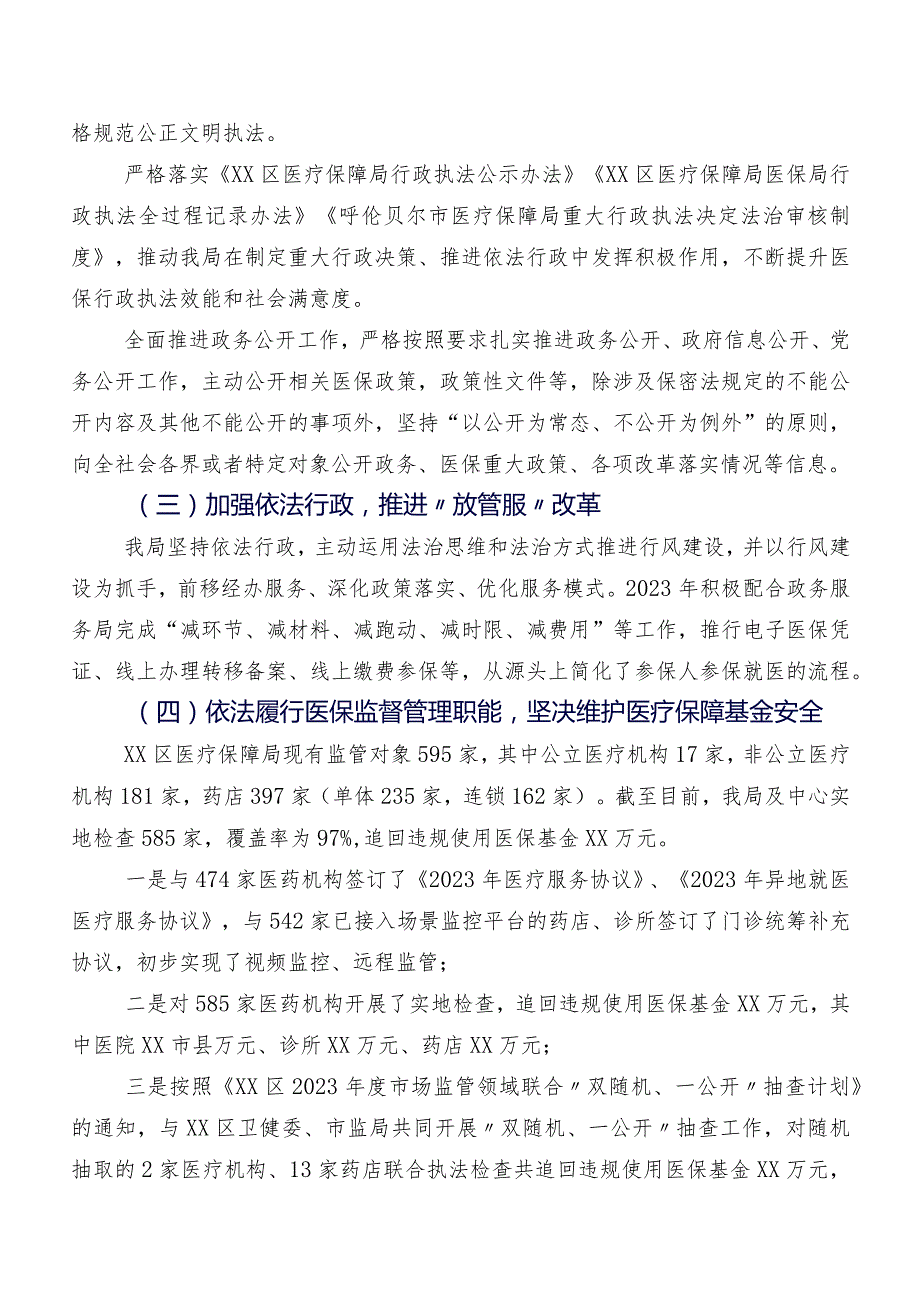 格规范公正文明执法。
严格落实《XX 区医疗保障局行政执法公示办法》《XX 区医疗保障局医保局行
政执法全过程记录办法》《呼伦贝尔市医疗保障局重大行政执法决定法治审核制
度》，推动我局在制定重大行政决策、推进依法行政中发挥积极作用，不断提升医
保行政执法效能和社会满意度。
全面推进政务公开工作，严格按照要求扎实推进政务公开、政府信息公开、党
务公开工作，主动公开相关医保政策，政策性文件等，除涉及保密法规定的不能公
开内容及其他不能公开的事项外，坚持“以公开为常态、不公开为例外”的原则，
向全社会各界或者特定对象公开政务、医保重大政策、各项改革落实情况等信息。
（三）加强依法行政，推进〃放管服〃改革
我局坚持依法行政，主动运用法治思维和法治方式推进行风建设，并以行风建
设为抓手，前移经办服务、深化政策落实、优化服务模式。2023 年积极配合政务服
务局完成“减环节、减材料、减跑动、减时限、减费用”等工作，推行电子医保凭
证、线上办理转移备案、线上缴费参保等，从源头上简化了参保人参保就医的流程。
（四）依法履行医保监督管理职能，坚决维护医疗保障基金安全
XX 区医疗保障局现有监管对象 595 家，其中公立医疗机构 17 家，非公立医疗
机构 181 家，药店 397 家（单体 235 家，连锁 162 家）。截至目前，我局及中心实
地检查 585 家，覆盖率为 97%,追回违规使用医保基金 XX 万元。
一是与 474 家医药机构签订了《2023 年医疗服务协议》、《2023 年异地就医
医疗服务协议》，与 542 家已接入场景监控平台的药店、诊所签订了门诊统筹补充
协议，初步实现了视频监控、远程监管；
二是对 585 家医药机构开展了实地检查，追回违规使用医保基金 XX 万元，其
中医院 XX 市县万元、诊所 XX 万元、药店 XX 万元；
三是按照《XX 区 2023 年度市场监管领域联合〃双随机、一公开〃抽查计划》
的通知，与 XX 区卫健委、市监局共同开展〃双随机、一公开〃抽查工作，对随机
抽取的 2 家医疗机构、13 家药店联合执法检查共追回违规使用医保基金 XX 万元，